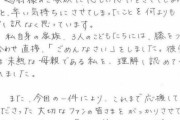 と、辛い気持ちにさせてしまったことを何よりも
し訳なく思っています。
私自身の家族、3人の子どもたちには、膝をつ
合わせ直接、「ごめんなさい」をしました。彼
未熟な母親である私を、理解し認めて
いました。
また、今回の一件により、これまで応援して
ださった大切なファンの皆さまをがっかりさせて